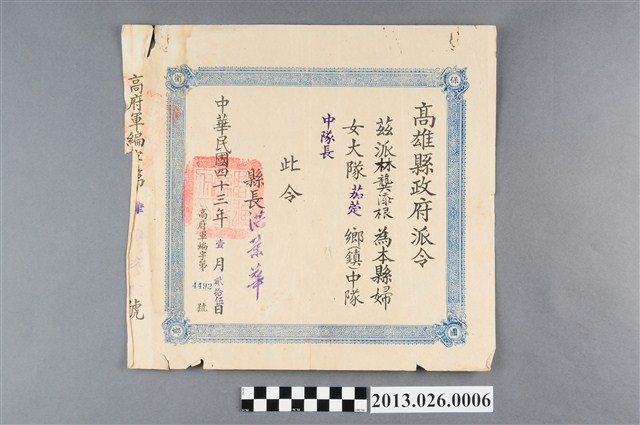 保
衛
國
鄉
高雄縣政府派令
茲派林龔添根為本縣婦
女大隊茄萣鄉(鎮)中隊
中隊長
此令
縣長洪榮華
中華民國四十三年壹月貳拾伍日
高府軍編字第4492號
高府軍編字第
號
2013.026.0006